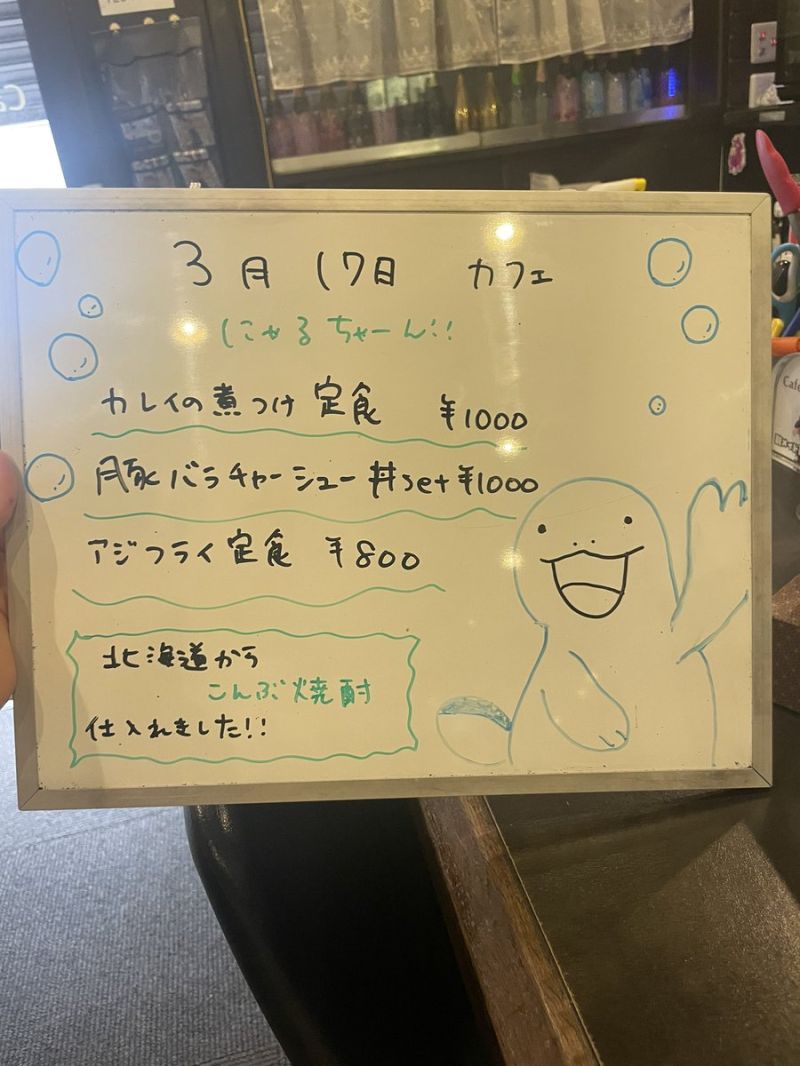 3月17日 カフェ
にゃるちゃーん!!
カレイの煮つけ定食 ¥1000
豚バラチャーシュー丼set ¥1000
アジフライ定食 ¥800
北海道から
こんぶ焼酎
仕入れました!!
Cafe